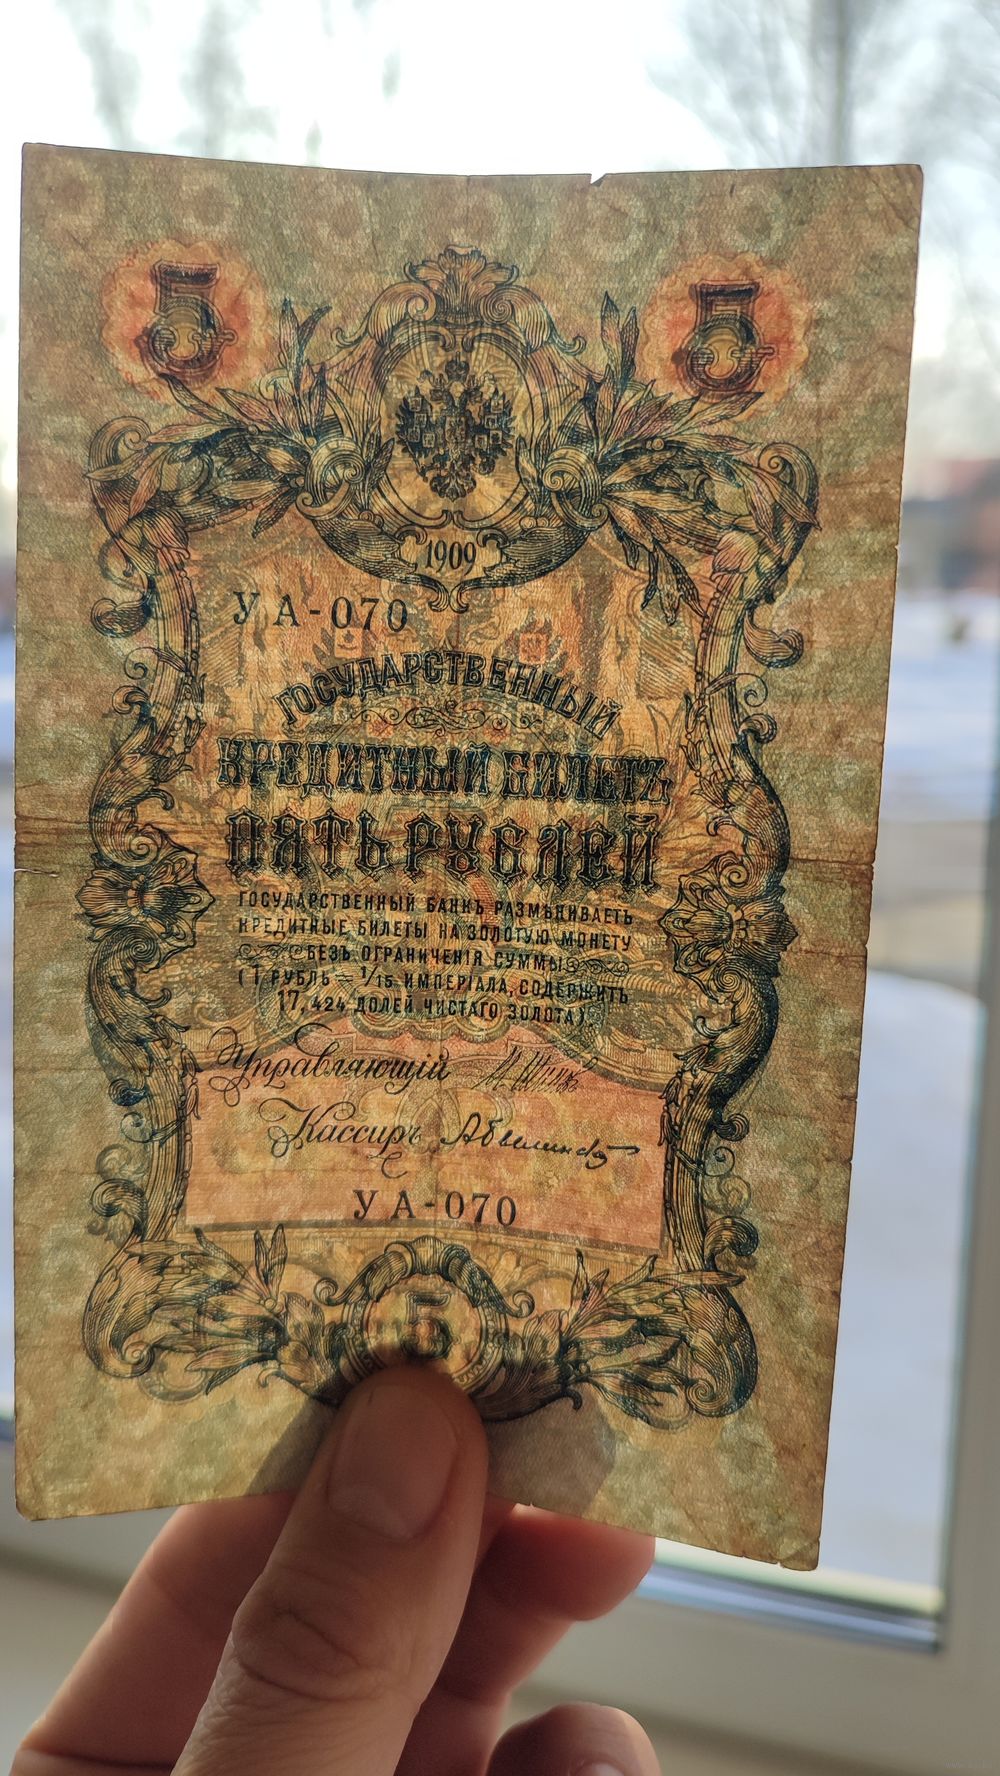 5 5
1909
УА-070
ГОСУДАРСТВЕННЫЙ
КРЕДИТНЫЙ БИЛЕТЪ
ПЯТЬ РУБЛЕЙ
ГОСУДАРСТВЕННЫЙ БАНКЪ РАЗМѢНИВАЕТЪ
КРЕДИТНЫЕ БИЛЕТЫ НА ЗОЛОТУЮ МОНЕТУ
БЕЗЪ ОГРАНИЧЕНІЯ СУММЫ
(1 РУБЛЬ = 1/15 ИМПЕРІАЛА, СОДЕРЖИТЪ
17,424 ДОЛЕЙ ЧИСТАГО ЗОЛОТА).
Управляющій И Шипов
Кассиръ
УА-070
5